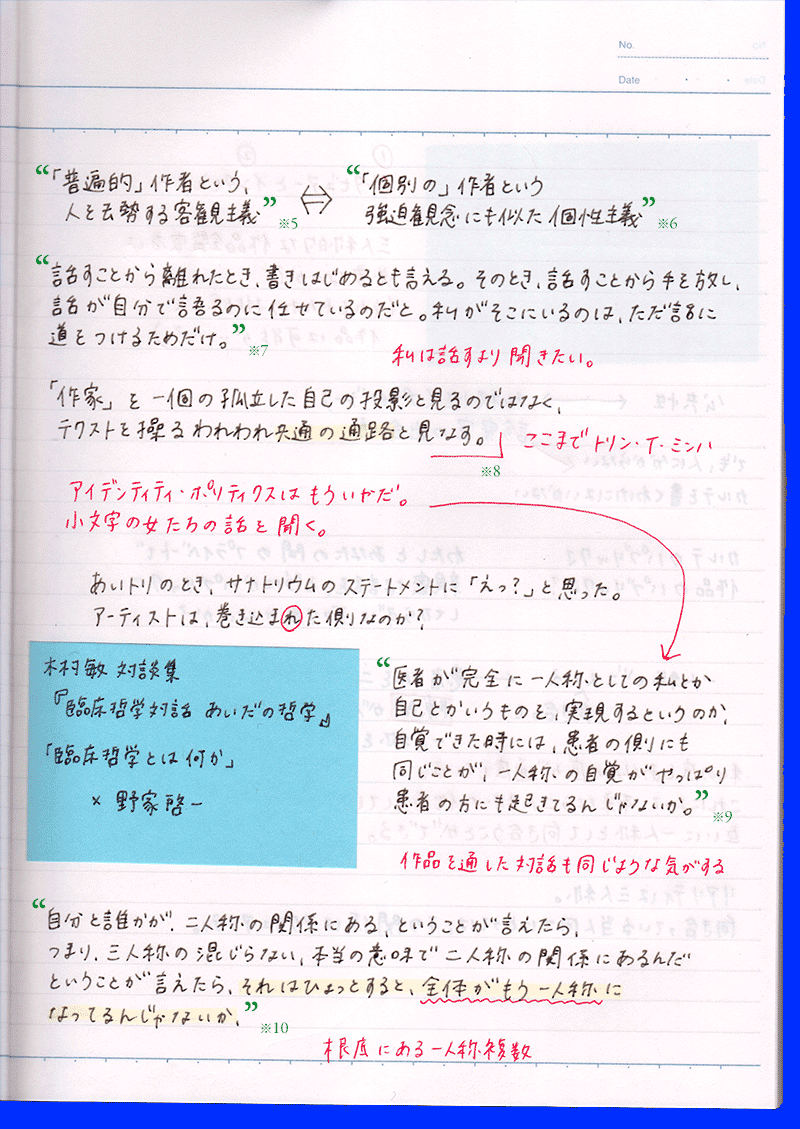 No.
Date
“「普遍的」作者という、
人を去勢する客観主義” ※5
⇔
“「個別の」作者という
強迫観念にも似た個性主義” ※6
“話すことから離れたとき、書きはじめるとも言える。そのとき、話すことから手を放し、
話が自分で語るのに任せているのだと。私がそこにいるのは、ただ話に
道をつけるためだけ。” ※7
私は話すより聞きたい。
「作家」を一個の孤立した自己の投影と見るのではなく、
テクストを操るわれわれ共通の通路と見なす。
※8
ここまでトリン・T・ミンハ
アイデンティティ・ポリティクスはもういやだ。
小文字の女たちの話を聞く。
あいトリのとき、サナトリウムのステートメントに「えっ?」と思った。
アーティストは、巻き込まれた側なのか?
木村敏 対談集
『臨床哲学対話 あいだの哲学』
「臨床哲学とは何か」
× 野家啓一
“医者が完全に一人称としての私とか
自己とかいうものを、実現するというのか、
自覚できた時には、患者の側にも
同じことが、一人称の自覚がやっぱり
患者の方にも起きてるんじゃないか。” ※9
作品を通した対話も同じような気がする
“自分と誰かが、二人称の関係にある、ということが言えたら、
つまり、三人称の混じらない、本当の意味で二人称の関係にあるんだ
ということが言えたら、それはひょっとすると、全体がもう一人称に
なってるんじゃないか、” ※10
根底にある一人称複数